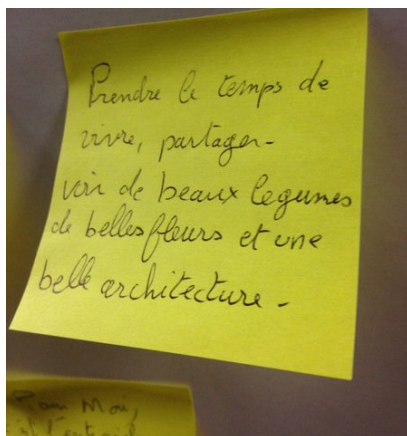 Prendre le temps de
vivre, partager-
voir de beaux legumes
de belles fleurs et une
belle architecture -
Pour Moi,